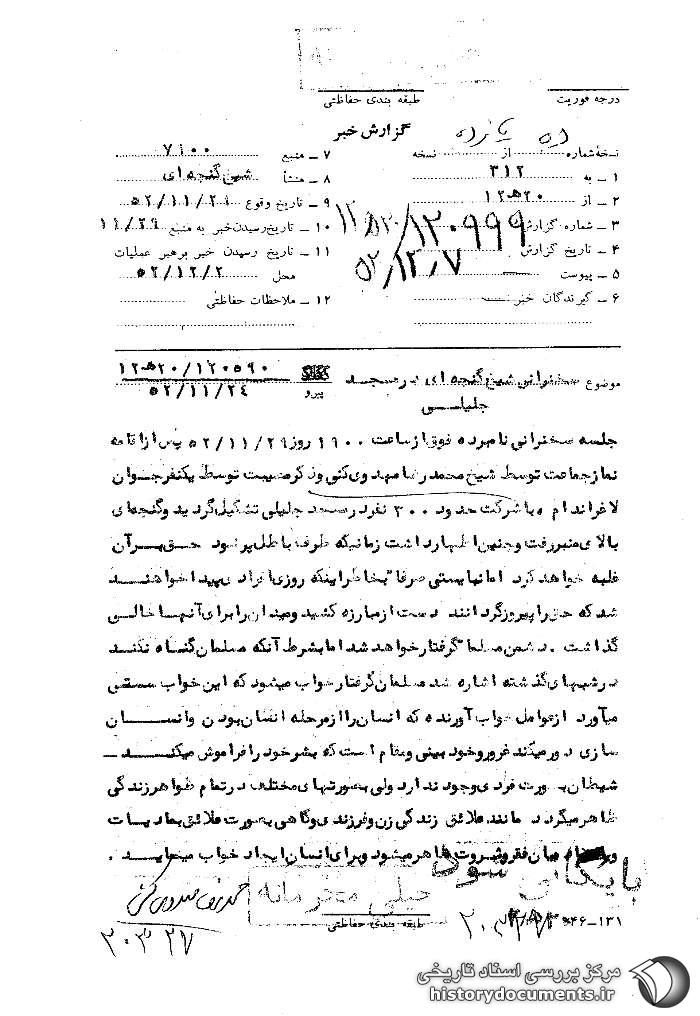 درجه فوریت
طبقه بندی حفاظتی
گزارش خبر
نسخه شماره از نسخه
۱ ـ به ۳۱۲
۲ ـ از ۲۰ ه‍ ۱۲
۳ ـ شماره گزارش ۱۲۰۹۹۹
۴ ـ تاریخ گزارش ۵۲/۱۲/۷
۵ ـ پیوست
۶ ـ گیرندگان خبر
۷ ـ منبع ۷۱۰۰
۸ ـ منشأ شیخ گنجه ای
۹ ـ تاریخ وقوع ۵۲/۱۱/۲۹
۱۰ ـ تاریخ رسیدن خبر به منبع ۱۱/۲۹
۱۱ ـ تاریخ رسیدن خبر برهبر عملیات
محل ۵۲/۱۲/۲
۱۲ ـ ملاحظات حفاظتی
موضوع سخنرانی شیخ گنجه ای در مسجد
جلیلی
پیرو ۱۲۰۵۹۰/۲۰ ه‍ ۱۲
۵۲/۱۱/۲۴
جلسه سخنرانی نامبرده فوق از ساعت ۱۹۰۰ روز ۵۲/۱۱/۲۹ پس از اقامه
نماز جماعت توسط شیخ محمد رضا مهدوی کنی و ذکر مصیبت توسط یکنفر جوان
لاغر اندام و با شرکت حدود ۳۰۰ نفر در مسجد جلیلی تشکیل گردید و گنجه ای
بالای منبر رفت و چنین اظهار داشت زمانیکه ظرف باطل پر شود حق بر آن
غلبه خواهد کرد اما نبایستی صرفا" بخاطر اینکه روزی افرادی پیدا خواهند
شد که حق را پیروز گردانند دست از مبارزه کشید و میدان را برای آنها خالی
گذاشت . دشمن مسلما" گرفتار خواهد شد اما بشرط آنکه مسلمان گناه نکند
در شبهای گذشته اشاره شد مسلمان گرفتار خواب میشود که این خواب سستی
میآورد از عوامل خواب آورنده که انسان را از مرحله انسان بودن و انسان
سازی دور میکند غرور و خود بینی و مقام است که بشر خود را فراموش میکند ـ
شیطان بصورت فردی وجود ندارد ولی بصورتهای مختلف در تمام ظواهر زندگی
ظاهر میگردد مانند علائق زندگی زن و فرزندی و گاهی بصورت علائق بمادیات
میان فقر و ثروت ظاهر میشود و برای انسان ایجاد خواب مینماید .
بایگانی شود
خیلی محرمانه
طبقه بندی حفاظتی
محمد رضا مهدوی کنی
۲۰۳۲۷
مرکز بررسی اسناد تاریخی
historydocuments.ir